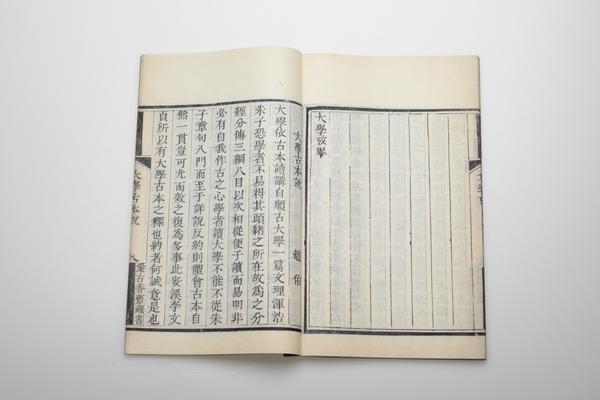 大學攷畢
大學古本說 趙佑
大學依古本讀講自順古大學一篇文理渾浩
朱子恐學者不易得其頭緒之所在故爲之分
經分傳三綱八目以次相從便于讀而易明非
必有自我作古之心學者讀大學不能不從朱
子章句入門而至于詳說反約則體會古本自
然一貫豈可尤而效之復爲多事此安溪李文
貞所以有大學古本之釋也約者何誠意是也
大學古本說 八 古香齋藏書